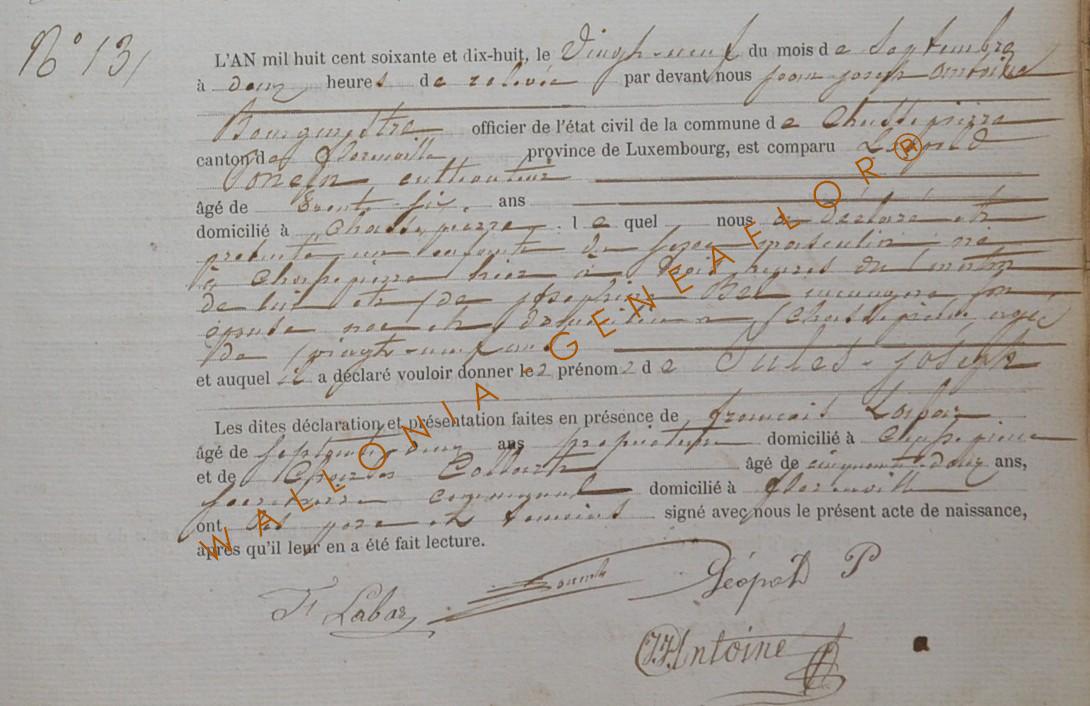 N° 131
L'AN mil huit cent soixante et dix-huit, le Vingt-neuf du mois de Septembre
à deux heures de relevée par devant nous jean joseph antoine
Bourgmestre officier de l'état civil de la commune de Chassepierre
canton de florenville province de Luxembourg, est comparu Léopold
Poncin
âgé de trente-six ans
domicilié à Chassepierre lequel nous a déclaré et
présenté un enfant du sexe masculin né
à Chassepierre hier à heures du matin
de lui et de joséphine ménagère son
épouse née et domiciliée à Chassepierre agée
de vingt-neuf ans
et auquel il a déclaré vouloir donner le2 prénom2 de Jules-joseph
Les dites déclaration et présentation faites en présence de francois
âgé de septante-deux ans propriétaire domicilié à Chassepierre
et de Charles Collard âgé de cinquante-deux ans,
Secrétaire communal domicilié à florenville
ont les père et temoins signé avec nous le présent acte de naissance,
après qu'il leur en a été fait lecture.
Léopold P
JJAntoine
WALLONIA - GENEAFLOR®